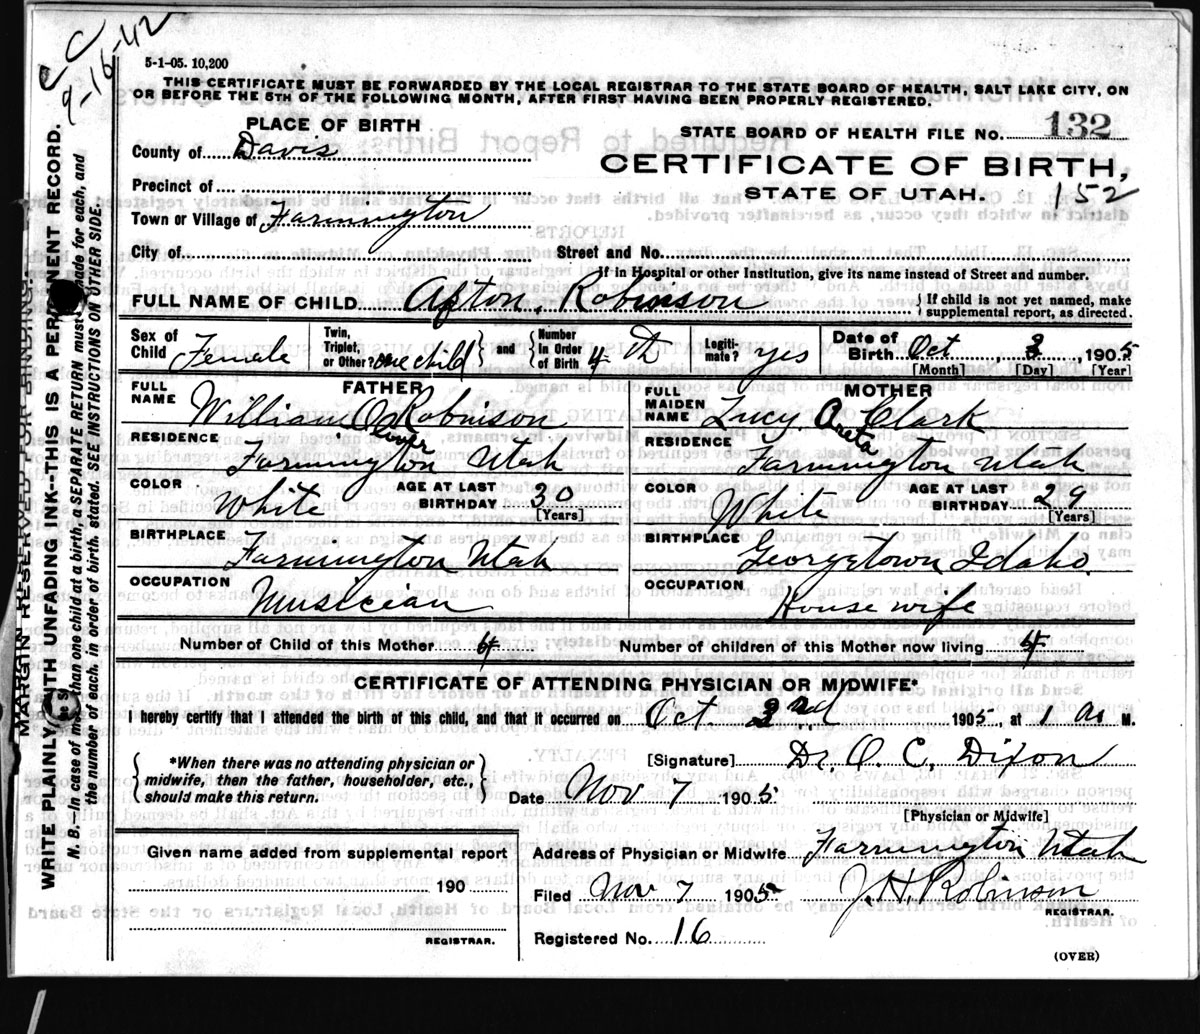 C C
9-16-42
5-1-05. 10,200
THIS CERTIFICATE MUST BE FORWARDED BY THE LOCAL REGISTRAR TO THE STATE BOARD OF HEALTH, SALT LAKE CITY, ON
OR BEFORE THE 5TH OF THE FOLLOWING MONTH, AFTER FIRST HAVING BEEN PROPERLY REGISTERED.
PLACE OF BIRTH
STATE BOARD OF HEALTH FILE NO. 132
County of Davis
CERTIFICATE OF BIRTH,
STATE OF UTAH. 152
Precinct of
Town or Village of Farmington
City of Street and No.
If in Hospital or other Institution, give its name instead of Street and number.
FULL NAME OF CHILD Afton Robinson { If child is not yet named, make
supplemental report, as directed.
Sex of Child Female Twin, Triplet, or Other? one child } and { Number in Order of Birth 4 th Legiti-mate? yes Date of Birth Oct 3, 1905
[Month] [Day] [Year]
FATHER MOTHER
FULL NAME William O Robinson FULL MAIDEN NAME Lucy A Clark
Areta
RESIDENCE Farmington Utah RESIDENCE Farmington Utah
COLOR White AGE AT LAST BIRTHDAY 30 [Years] COLOR White AGE AT LAST BIRTHDAY 29 [Years]
BIRTHPLACE Farmington Utah BIRTHPLACE Georgetown Idaho
OCCUPATION Musician OCCUPATION House wife
Number of Child of this Mother 4 Number of children of this Mother now living 4
CERTIFICATE OF ATTENDING PHYSICIAN OR MIDWIFE*
I hereby certify that I attended the birth of this child, and that it occurred on Oct 3 1905, at 1 a M.
{ *When there was no attending physician or
midwife, then the father, householder, etc.,
should make this return. }
[Signature] Dr. O. C. Dixon
Date Nov 7 1905
[Physician or Midwife]
Given name added from supplemental report
190
REGISTRAR.
Address of Physician or Midwife Farmington Utah
Filed Nov 7 1905 J. H. Robinson
REGISTRAR.
Registered No. 16
(OVER)
MARGIN RESERVED FOR BINDING.
WRITE PLAINLY WITH UNFADING INK--THIS IS A PERMANENT RECORD.
N. B.—In case of more than one child at a birth, a SEPARATE RETURN must be made for each, and
the number of each, in order of birth, stated. SEE INSTRUCTIONS ON OTHER SIDE.